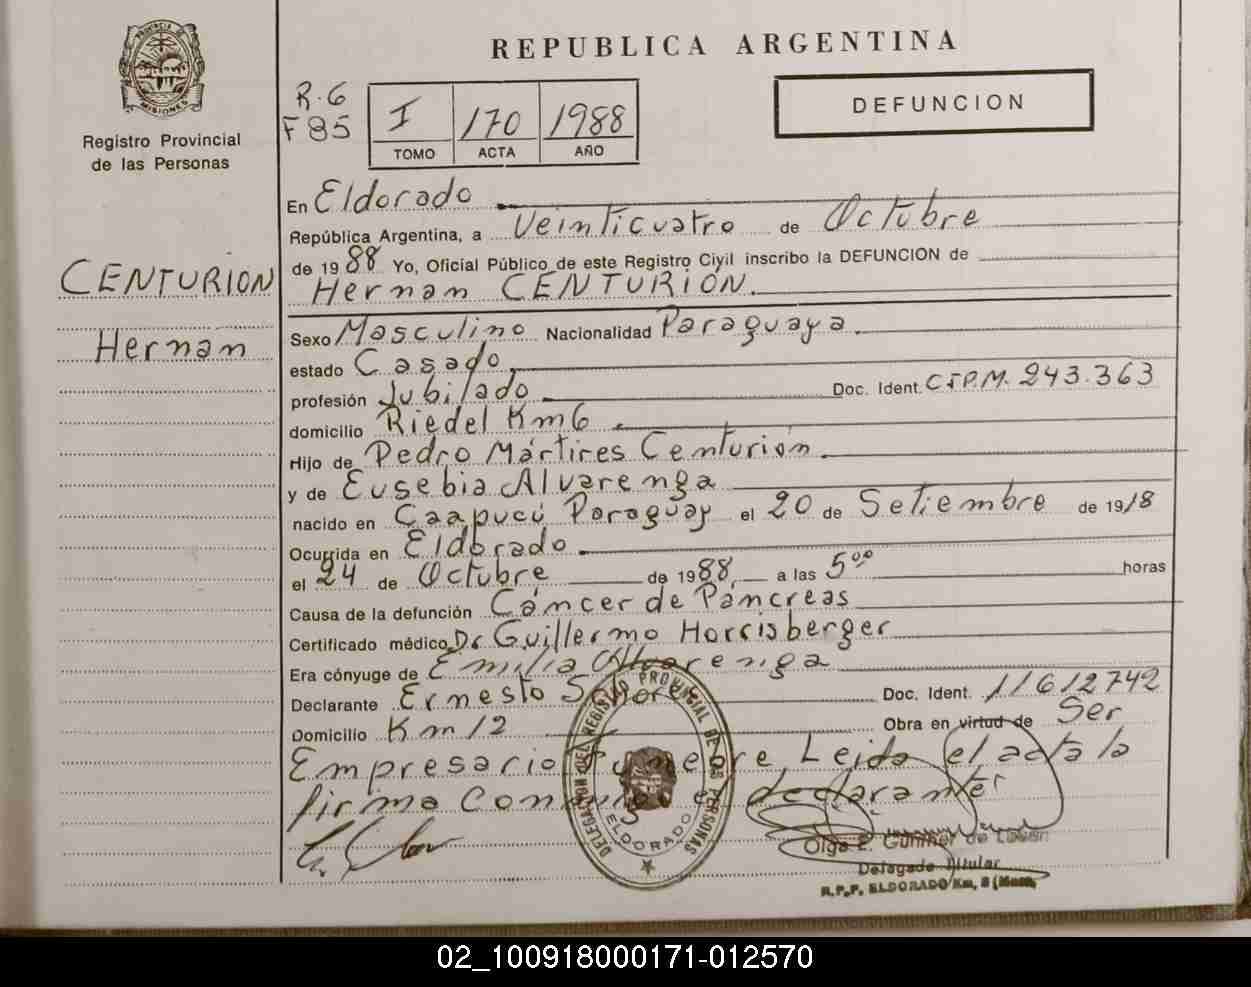 PROVINCIA DE
MISIONES
Registro Provincial
de las Personas
CENTURION
Hernán
REPUBLICA ARGENTINA
R.6
F 85
I 170 1988
TOMO ACTA AÑO
DEFUNCION
En Eldorado
República Argentina, a Veinticuatro de Octubre
de 1988 Yo, Oficial Público de este Registro Civil inscribo la DEFUNCION de
Hernán CENTURIÓN.
Sexo Masculino Nacionalidad Paraguaya.
estado Casado
profesión Jubilado Doc. Ident. C.I.P.M. 243.363
domicilio Riedel Km 6
Hijo de Pedro Mártires Centurión
y de Eusebia Alvarenga
nacido en Caapucú Paraguay el 20 de Setiembre de 1918
Ocurrida en Eldorado
el 24 de Octubre de 1988, a las 5ºº horas
Causa de la defunción Cáncer de Páncreas
Certificado médico Dr Guillermo Horrisberger
Era cónyuge de Emilia Alvarenga
Declarante Ernesto Doc. Ident. 11612742
Domicilio Km 12 Obra en virtud de Ser
Empresario Leida el acta la
firma Conmigo el declarante
DELEGACION DEL REGISTRO PROVINCIAL DE LAS PERSONAS
ELDORADO
Olga E. Günther de
Delegada Titular
R.P.P. ELDORADO Km. 9 (Mnes.
02_100918000171-012570